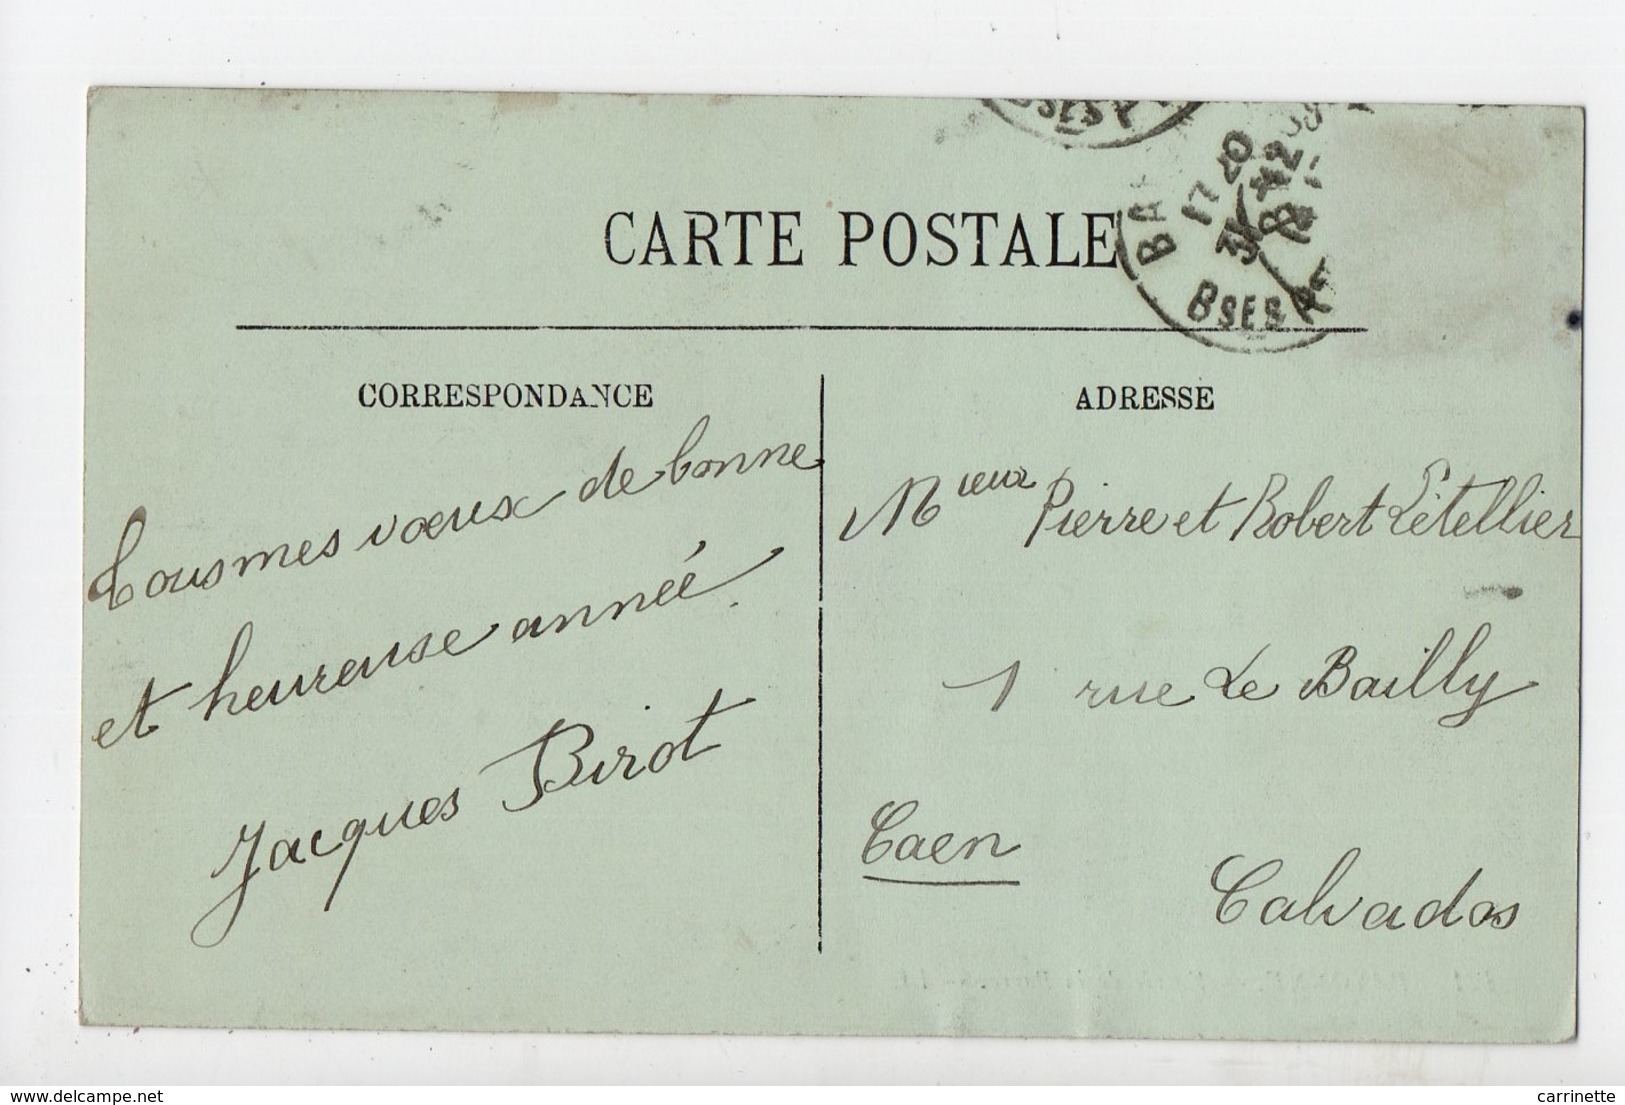 CARTE POSTALE
BA
17 20
31
BSES P
BSES P
CORRESPONDANCE
Tous mes vœux de bonne
et heureuse année.
Jacques Birot
ADRESSE
Mieux Pierre et Robert Létellier
1 rue Le Bailly
Caen
Calvados
delcampe.net
carrinette